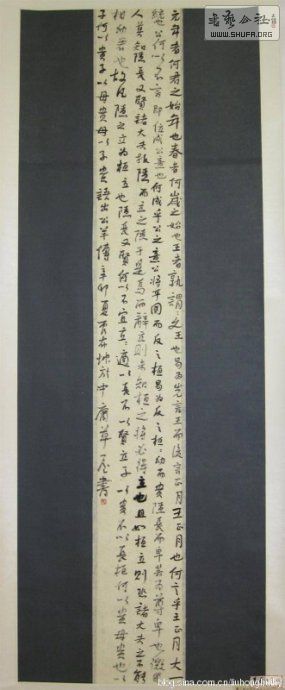 元年者何君之始年也春者何歲之始也王者孰謂文王也曷為先言王而後言正月王正月也何言乎王正月大
統也公何以不言即位成公意也何成乎公之意公將平國而反之桓曷為反之桓幼而貴隱長而卑其為尊卑也微
人莫知隱長又賢諸大夫扳隱而立之隱于是焉而辭立則未知桓之將必得立也且如桓立則恐諸大夫之不能
相幼君也故凡隱之立為桓立也隱長又賢何以不宜立適以長不以賢立子以貴不以長桓何以貴母貴也
子何以貴子以母貴母以子貴語出公羊傳辛卯夏書
书艺公社
WWW.SHUFA.ORG
blog.sina.com.cn